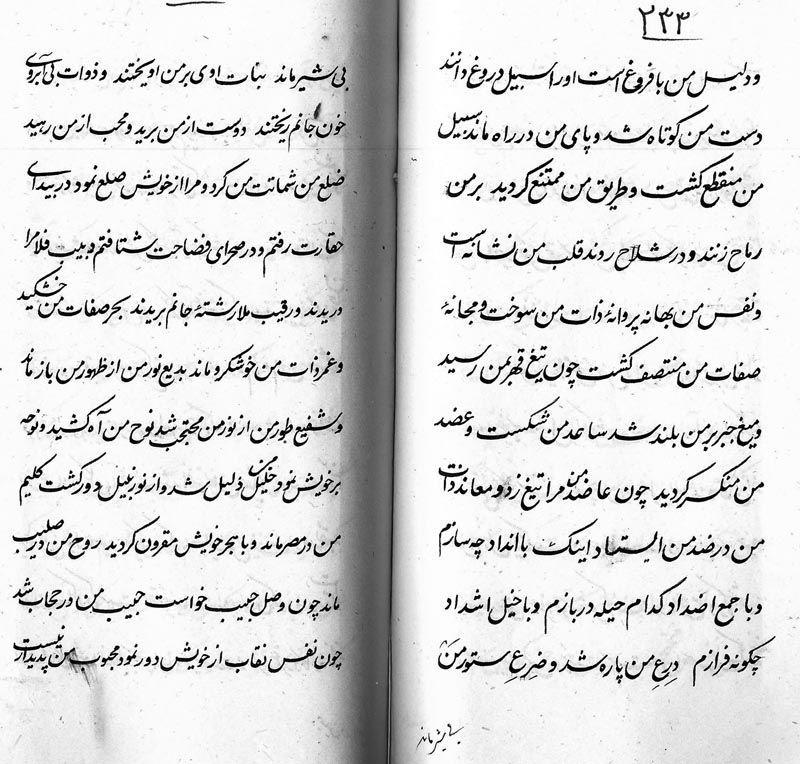 ۲۳۳
و دلیل من با فروغ است او را سبیل دروغ دانند
دست من کوتاه شد و پای من در راه ماند سبیل
من منقطع گشت و طریق من ممتنع گردید بر من
رماح زنند و در شلاح روند قلب من نشانه است
و نفس من بهانه پروانهٔ ذات من سوخت و مجانهٔ
صفات من منتصف گشت چون تیغ قهر بمن رسید
و میغ جبر بر من بلند شد ساعد من شکست و عضد
من منکسر گردید چون عاضد من مرا تیغ زد و معاند ذات
من در ضد من ایستاد اینک با انداد چه سازم
و با جمع اضداد کدام حیله در بازم و با خیل اشداد
چگونه فرازم درع من پاره شد و ضرع ستور من
بی شیر ماند
بی شیر ماند بنات اوی بر من آویختند و ذوات بی آبروی
خون جانم ریختند دوست از من برید و محب از من رهید
ضلع من شماتت من کرد و مرا از خویش صلع نمود در بیدای
حقارت رفتم و در صحرای فضاحت شتافتم دبیب فلا مرا
دریدند و رقیب ملا رشتهٔ جانم بریدند بحر صفات من خشکید
و غمر ذات من خوشکرو ماند بدیع نور من از ظهور من باز ماند
و شفیع طور من از نور من محتجب شد نوح من آه کشید و نوحه
بر خویش نمود خلیل من ذلیل شد و از نور نبیل دور گشت کلیم
من در مصر ماند و با هجر خویش مقرون گردید روح من در صلیب
ماند چون وصل حبیب خواست حبیب من در حجاب شد
چون نفس نقاب از خویش دور نمود محبوب من پدیدار نیست